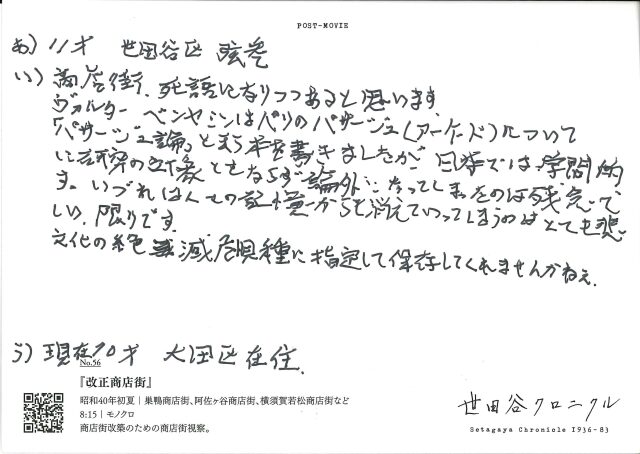 POST-MOVIE
あ) 11才 世田谷区 弦巻
い) 商店街、死語になりつつあると思います
ヴァルター ベンヤミンはパリのパサージュ(アーケード)について
「パサージュ論」と云う本を書きましたが、日本では学問的
に研究の対象ともならず論外になってしまったのは残念で
す。いづれは人々の記憶からも消えていってしまうのはとても悲
しい限りです。
文化の絶滅危惧種に指定して保存してくれませんかねえ。
う) 現在70才 大田区在住
No.56
『改正商店街』
昭和40年初夏|巣鴨商店街、阿佐ヶ谷商店街、横須賀若松商店街など
8:15|モノクロ
商店街改築のための商店街視察。
世田谷クロニクル
Setagaya Chronicle 1936-83